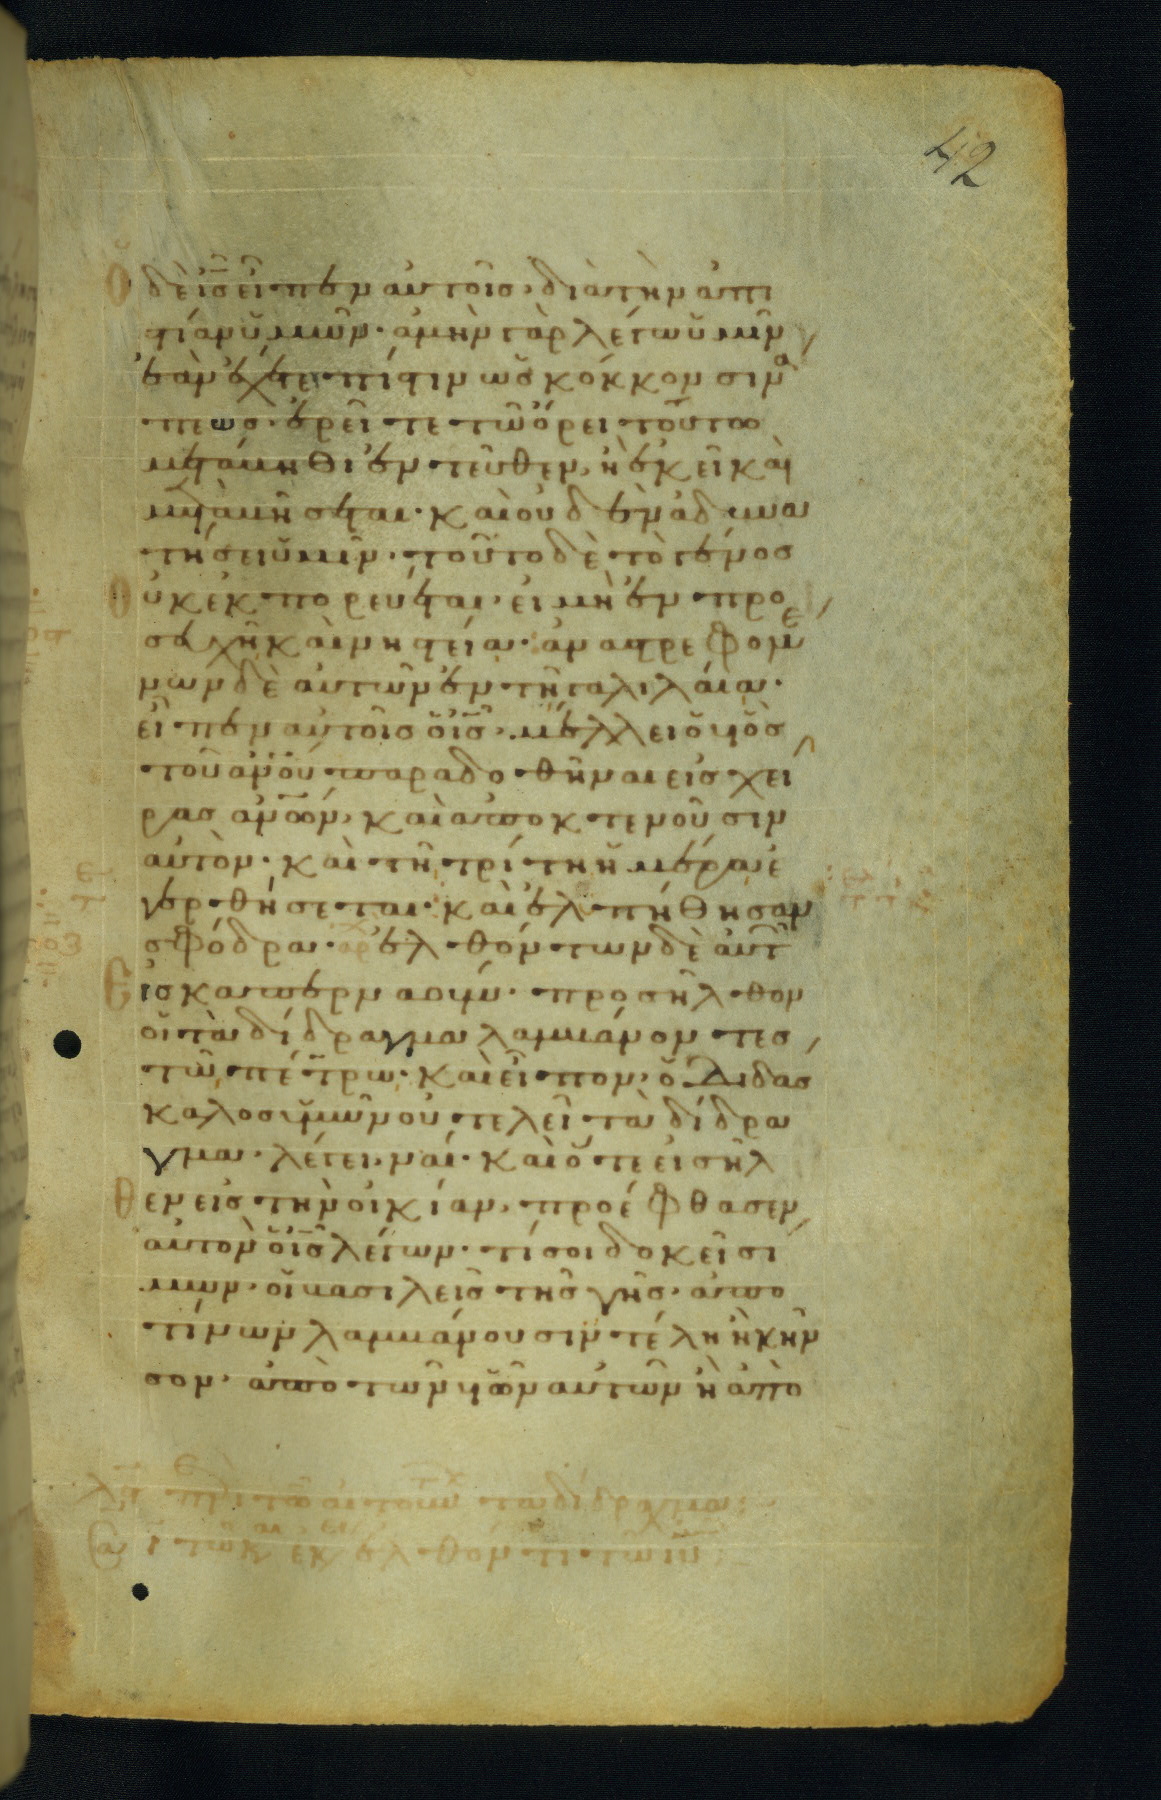 42
Ὁ δὲ ἰ̅ς̅ εἶπεν αὐτοῖς, διὰ τὴν ἀπι
στίαν ὑμῶν· ἀμὴν γὰρ λέγω ὑμῖν
ἐὰν ἔχητε πίστιν ὡς κόκκον σινα
πεως· ἐρεῖτε τῶ ὄρει τούτω
μετάβηθι ἐντεῦθεν, ἢ ἐκεῖ καὶ
μεταβήσεται· καὶ οὐδὲν ἀδυνα
τήσει ὑμῖν· τοῦτο δὲ τὸ γένος
Οὐκ ἐκπορεύεται· εἰ μὴ ἐν προ
σευχῆ καὶ νηστεία· ἀναστρεφομέ
νων δὲ αὐτῶν ἐν τῆ γαλιλαία·
εἶπεν αὐτοῖς ὁ ἰ̅ς̅, μέλλει ὁ υἱὸς
τοῦ ἀ̅ν̅ο̅υ̅ παραδοθῆναι εἰς χεῖ
ρας ἀ̅ν̅ω̅ν̅, καὶ ἀποκτενοῦσιν
αὐτὸν· καὶ τῆ τρίτη ἡμέρα ἐ
γερθήσεται· καὶ ἐλυπήθησαν
σφόδρα· ἐλθόντων δὲ αὐτῶν
Εἰς καπερναούμ· προσῆλθον
οἱ τὰ δίδραγμα λαμβάνοντες
τῶ πέτρω· καὶ εἶπον, ὁ διδας
καλος ὑμῶν οὐ τελεῖ τὰ δίδρα
γμα· λέγει, ναί· καὶ ὅτε εἰσῆλ
Θεν εἰς τὴν οἰκίαν, προέφθασεν
αὐτὸν ὁ ἰ̅ς̅ λέγων· τί σοι δοκεῖ σί
μων· οἱ βασιλεῖς τῆς γῆς· ἀπο
τίνων λαμβάνουσιν τέλη ἢ κῆν
σον· ἀπὸ τῶν υἱῶν αὐτῶν ἢ ἀπὸ
τὰ δίδραχμα: